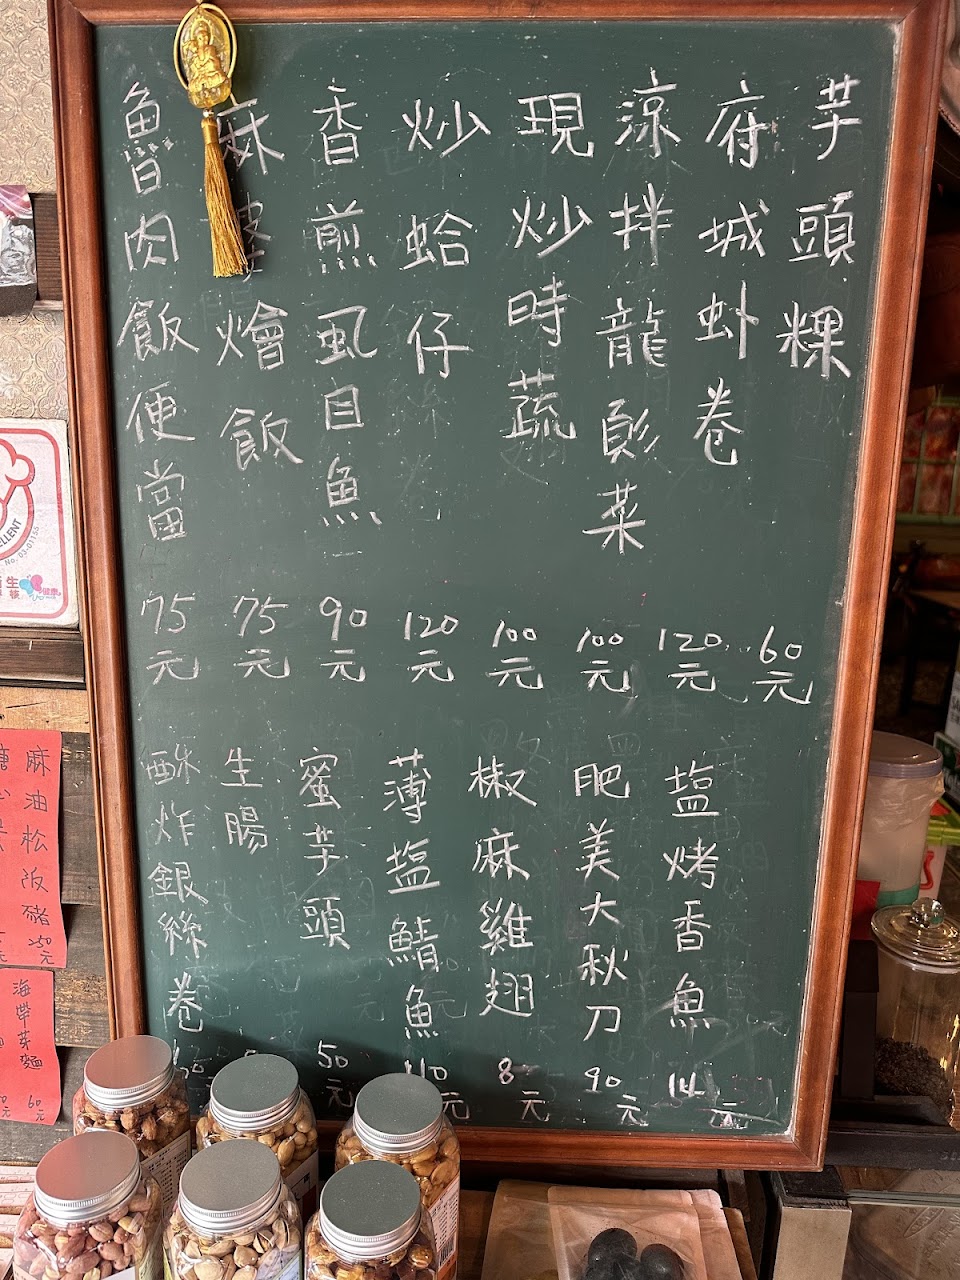 芋頭粿
60元
府城蚵卷
120元
涼拌龍鬚菜
100元
現炒時蔬
100元
炒蛤仔
120元
香煎虱目魚
90元
麻婆燴飯
75元
魯肉飯便當
75元
塩烤香魚
14元
肥美大秋刀
90元
椒麻雞翅
8元
薄塩鯖魚
110元
蜜芋頭
50元
生腸
酥炸銀絲卷
麻油松阪豬
250元
海帶芽麵
60元
No. 03-01155